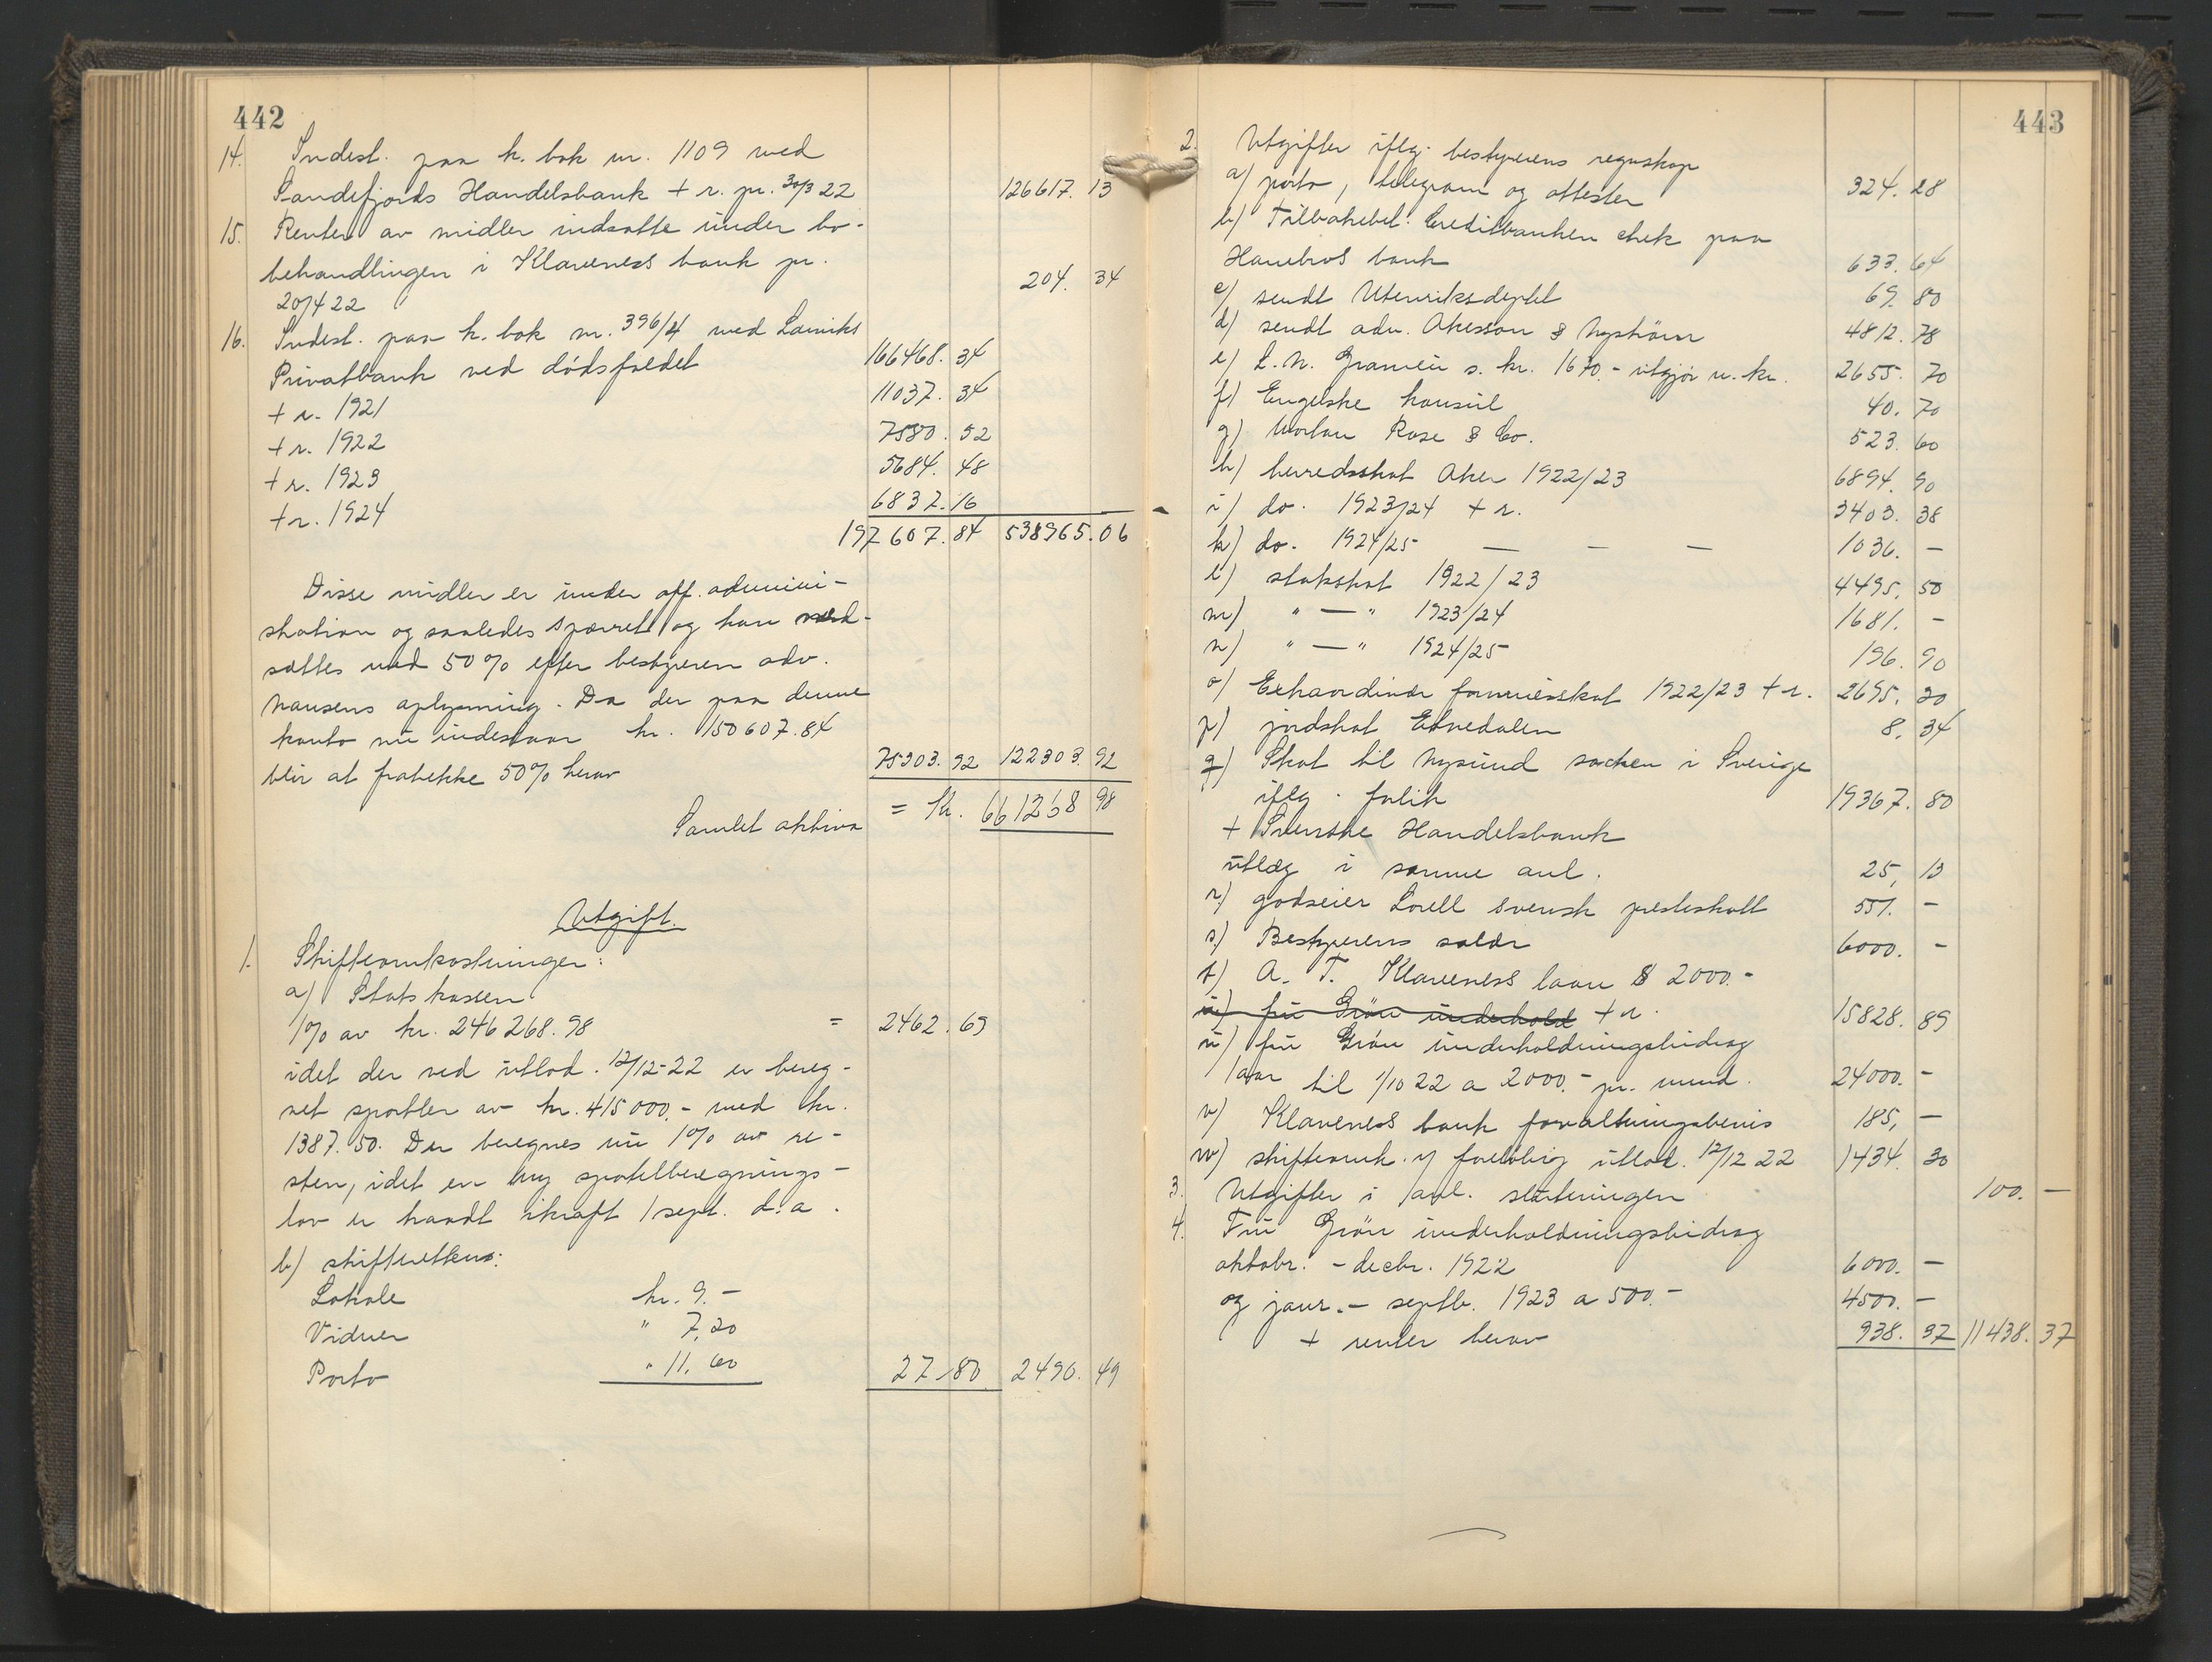 442
14. Indest. paa k. bok nr. 1109 med
Sandefjords Handelsbank + r. pr. 30/3 22 126617. 13
15. Renter av midler indsatte under bo-
behandlingen i Klaveness bank pr.
20/4 22 204. 34
16. Indest. paa k. bok nr. 396/4 med Larviks
Privatbank ved dödsfaldet 166468. 34
+ r. 1921 11037. 34
+ r. 1922 7580. 52
+ r. 1923 5684. 48
+ r. 1924 6832. 16
197607. 84 538965. 06
Disse midler er under off. admini-
stration og saaledes spærret og kan ned-
sættes med 50% efter bestyreren adv.
Nansens oplysning. Da der paa denne
konto nu indestaar kr. 150607.84
blir at fratrekke 50% herav 75303. 92 122303. 92
Samlet aktiva = Kr. 661268 98
Utgift.
1. Skifteomkostninger:
a) Statskassen
1% av kr. 246268.98 = 2462. 69
idet der ved utlod. 12/12-22 er bereg-
net sportler av kr. 415000.- med kr.
1387.50. Der beregnes nu 1% av re-
sten, idet en ny sportelberegnings-
lov er traadt ikraft 1 sept. d. a.
b) skifterettens:
Lokale kr. 9.-
Vidner " 7,20
Porto " 11,60 27 80 2490. 49
443
2. Utgifter iflg. bestyrerens regnskap
a) porto, telegram og attester 324. 28
b) Tilbakebet. Creditbanken chek paa
Hambros bank 633. 64
c) sendt Utenriksdeptet 69. 80
d) sendt adv. Akesson & Nyström 4812. 78
e) L. N. Granvin s. kr. 1670.- utgjör n. kr. 2655. 70
f) Engelske konsul 40. 70
g) Morton Rose & Co. 523. 60
h) herredsskat Aker 1922/23 6894. 90
i) do. 1923/24 + r. 3403. 38
k) do. 1924/25 — — — 1036. -
l) statsskat 1922/23 4495. 50
m) " — " 1923/24 1681. -
n) " — " 1924/25 196. 90
o) Extraordinær formuesskat 1922/23 + r. 2695. 20
p) jordskat Ednedalen 8. 34
q) Skat til Nysund socken i Sverige
iflg. bilik 19367. 80
+ Svenske Handelsbank
utlæg i samme anl. 25, 13
r) godseier Lorell svensk presteskatt 551. -
s) Bestyrerens salær 6000. -
t) A. F. Klaveness laan $ 2000.-
u) fru Grön underhold + r. 15828. 89
u) fru Grön underholdningsbidrag
1 aar til 1/10 22 a 2000.- pr. mund. 24000. -
v) Klaveness bank forvaltningsbevis 185, -
w) skifteomk. v/ foreløbig utlod. 12/12 22 1434. 30
3. Utgifter i anl. slutningen 100. -
4. Fru Grön underholdningsbidrag
oktobr. - decbr. 1922 6000. -
og janr. - septb. 1923 a 500.- 4500. -
+ renter herav 938. 37 11438. 37